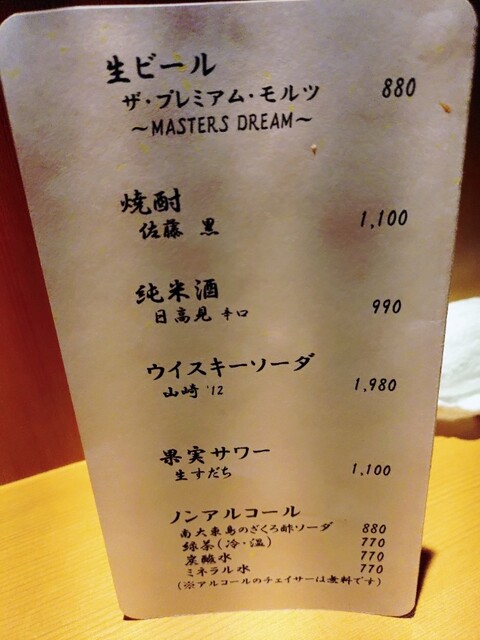 生ビール
ザ・プレミアム・モルツ 880
～MASTERS DREAM～
焼酎
佐藤 黒 1,100
純米酒
日高見 辛口 990
ウイスキーソーダ
山崎 '12 1,980
果実サワー
生すだち 1,100
ノンアルコール
南大東島のざくろ酢ソーダ 880
緑茶(冷・温) 770
炭酸水 770
ミネラル水 770
(※アルコールのチェイサーは無料です)